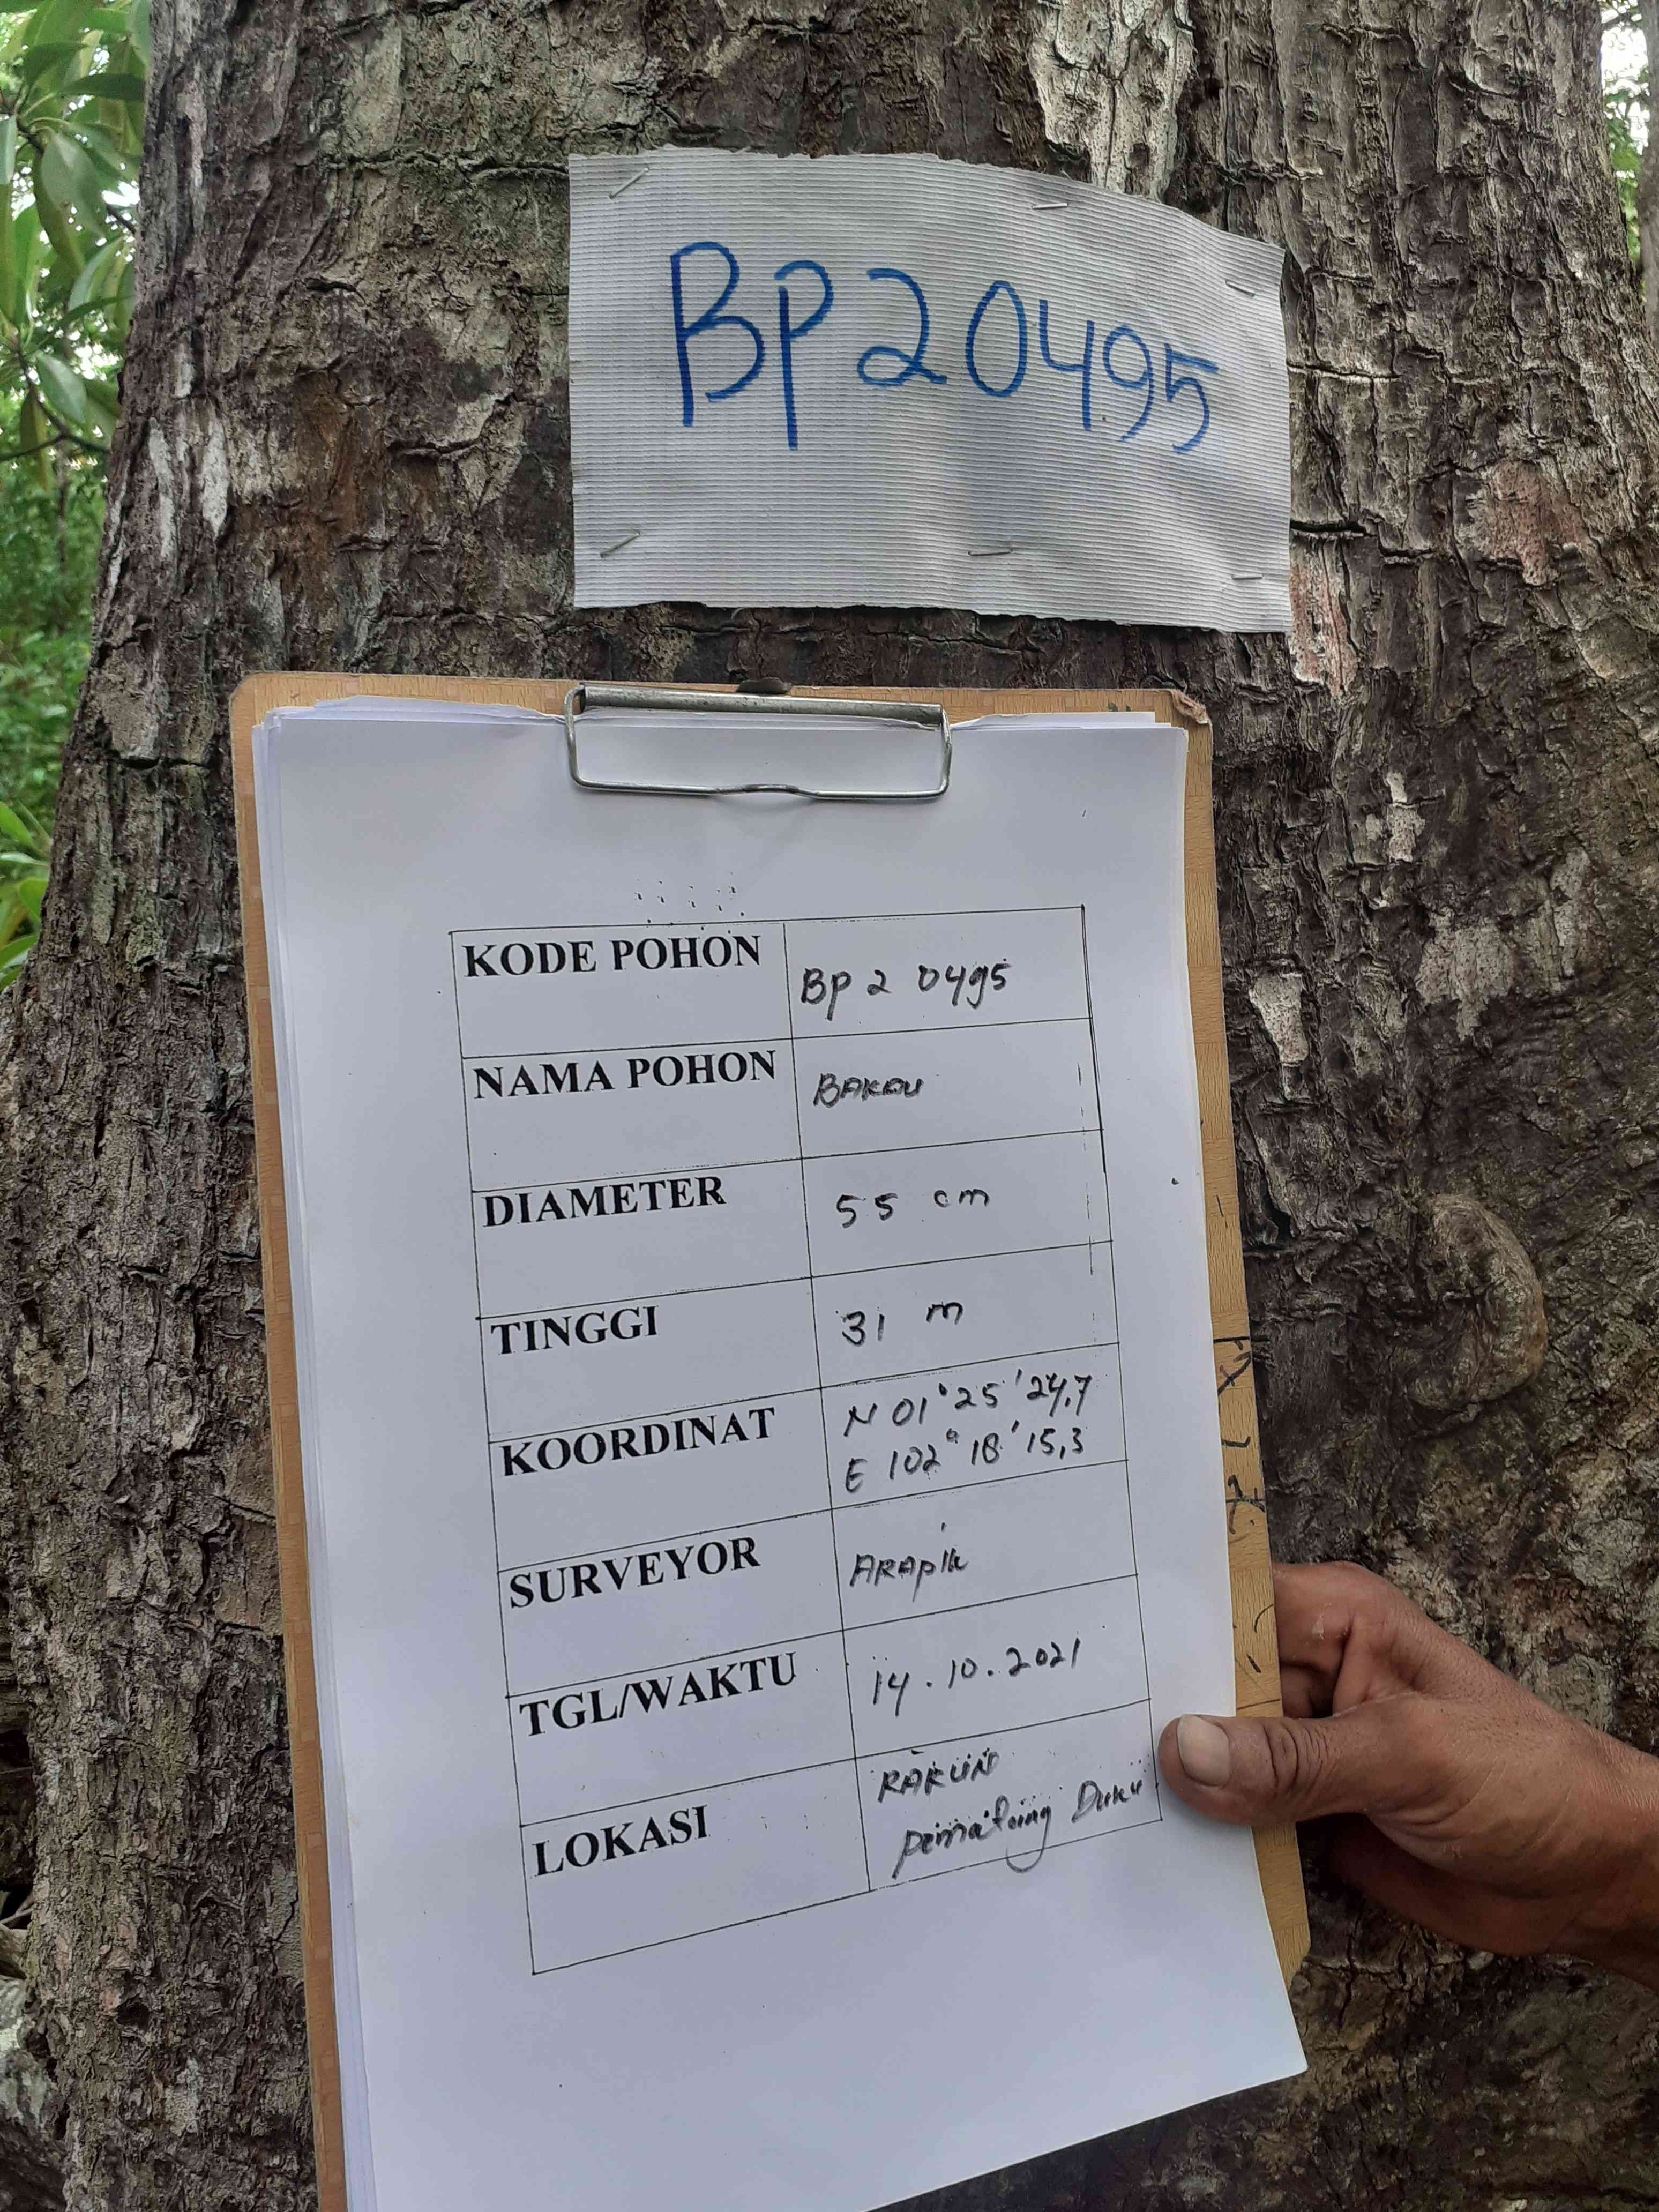 BP20495
KODE POHON BP2 0495
NAMA POHON BAKAU
DIAMETER 55 cm
TINGGI 31 m
KOORDINAT N 01°25'24,7
E 102°18'15,3
SURVEYOR ARApik
TGL/WAKTU 14.10.2021
LOKASI
Duku